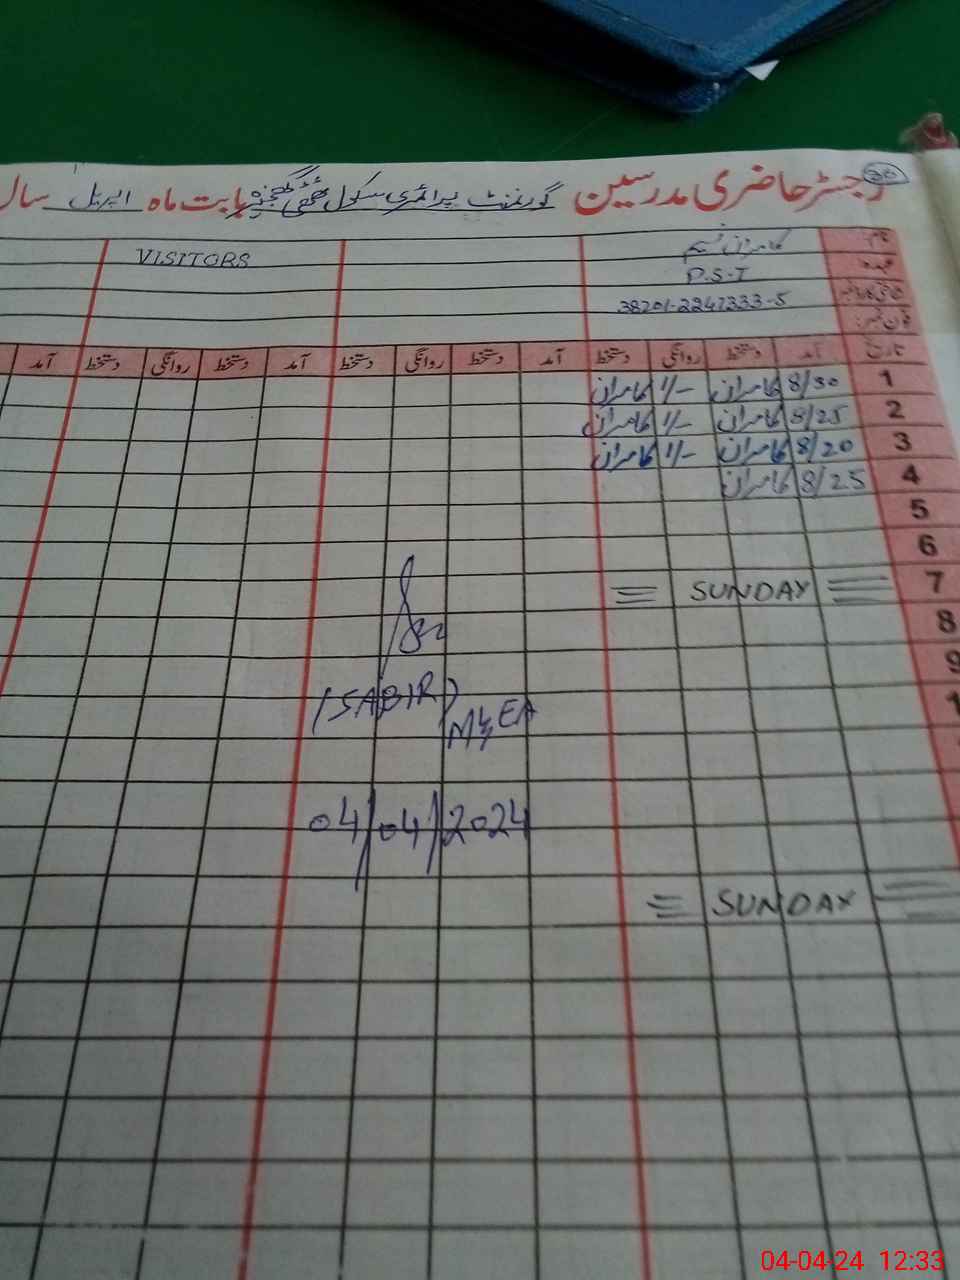 26
رجسٹر حاضری مدرسین گورنمنٹ پرائمری سکول بابت ماہ اپریل سال
نام: کامران نسیم
VISITORS
عہدہ: P.S.T
شناختی کارڈ نمبر: 38201-2247333-5
فون نمبر:
تاریخ آمد دستخط روانگی دستخط آمد دستخط روانگی دستخط آمد دستخط روانگی دستخط آمد
1 8/30 کامران 1/- کامران
2 8/25 کامران 1/- کامران
3 8/20 کامران 1/- کامران
4 8/25 کامران
5
6
7 SUNDAY
8
9
1
(SABIR)
M&EA
04/04/2024
SUNDAY
04-04-24 12:33